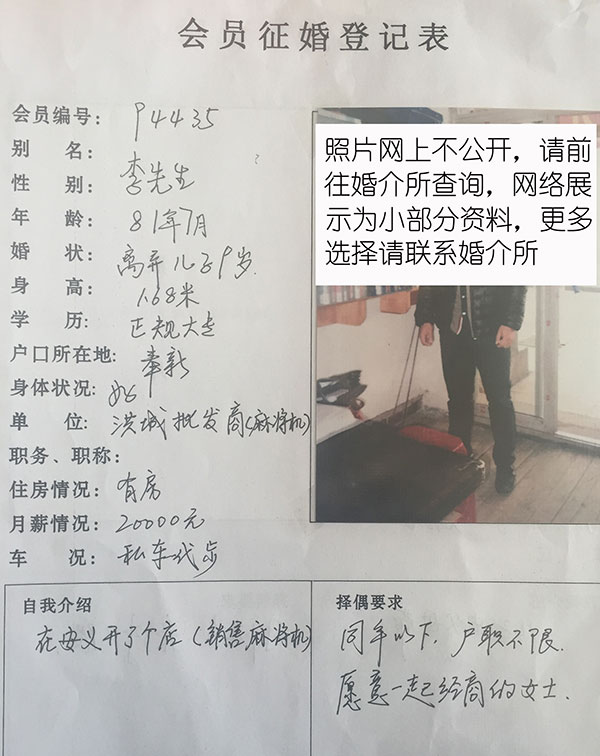 会员征婚登记表
会员编号: 94435
别 名: 李先生
性 别:
年 龄: 81年7月
婚 状: 离弃儿子9岁
身 高: 1.68米
学 历: 正规大专
户口所在地: 奉新
身体状况: 好
单 位: 洪城批发商(麻将机)
职务、职称:
住房情况: 有房
月薪情况: 20000元
车 况: 私车代步
照片网上不公开，请前
往婚介所查询，网络展
示为小部分资料，更多
选择请联系婚介所
自我介绍
在安义开了个店(销售麻将机)
择偶要求
同年以下. 户职不限.
愿意一起经商的女士.